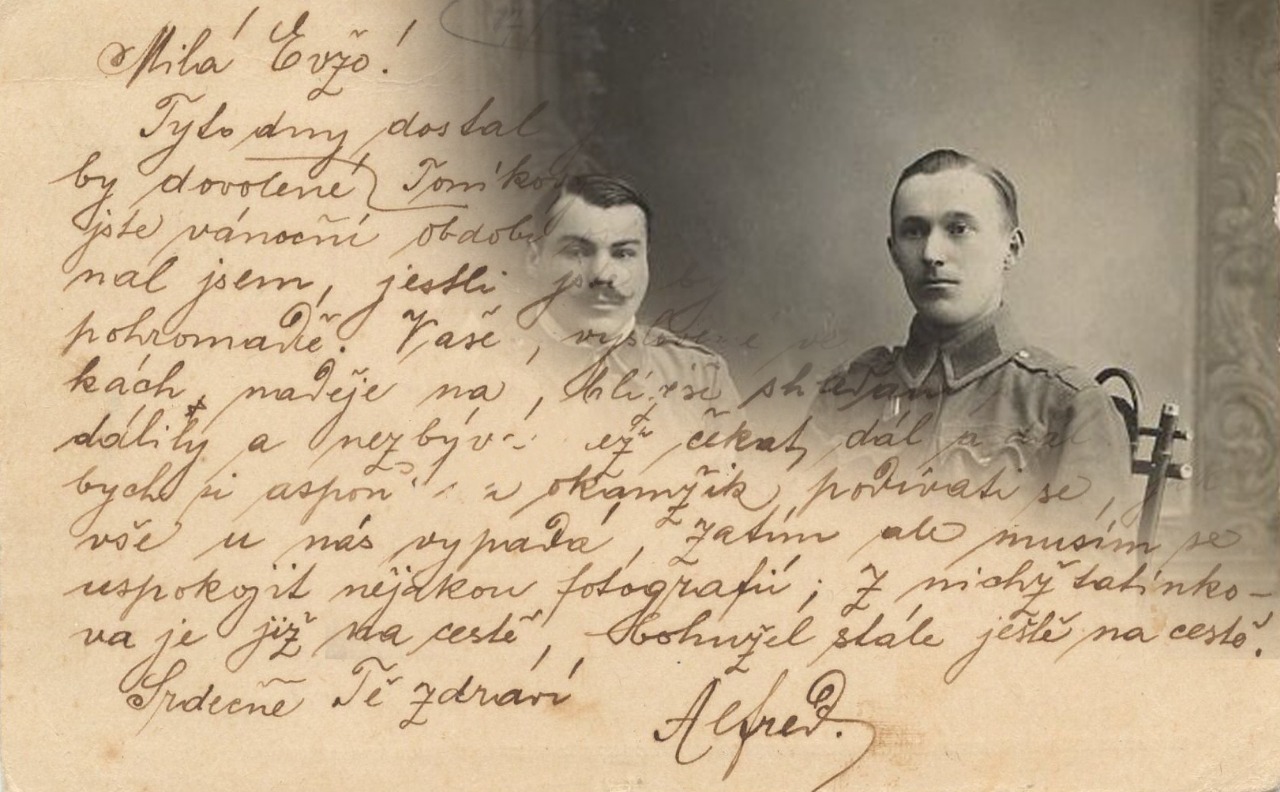 Milá Evžo!
Tyto dny dostal
by dovolené Toníkov
jste vánoční období
nal jsem, jestli
pohromadě. Vaše, vyslovené ve
kách, naděje na, bližší shledání,
dálily a nezbývá než čekat dál a rád
bych si aspoň na okamžik podívati se,
vše u nás vypadá, zatím ale musím se
uspokojit nějakou fotografií; z nichž tatínko-
va je již na cestě, bohužel stále ještě na cestě.
Srdečně Tě zdraví
Alfred.